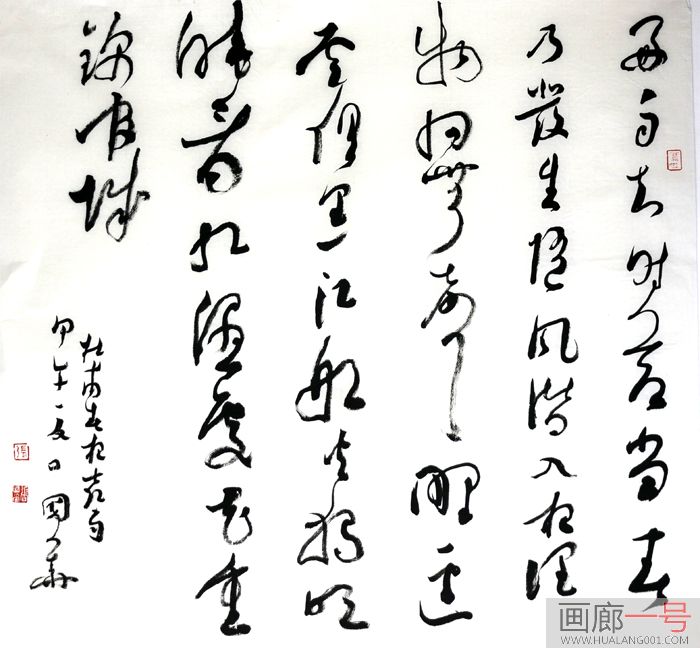 好雨知时节當春
乃發生随风潜入夜润
物细無聲野径
雲俱黑江船火独明
晓看红湿處花重
锦官城
杜甫春夜喜雨
甲午夏日國華
画廊一号
WWW.HUALANG001.COM